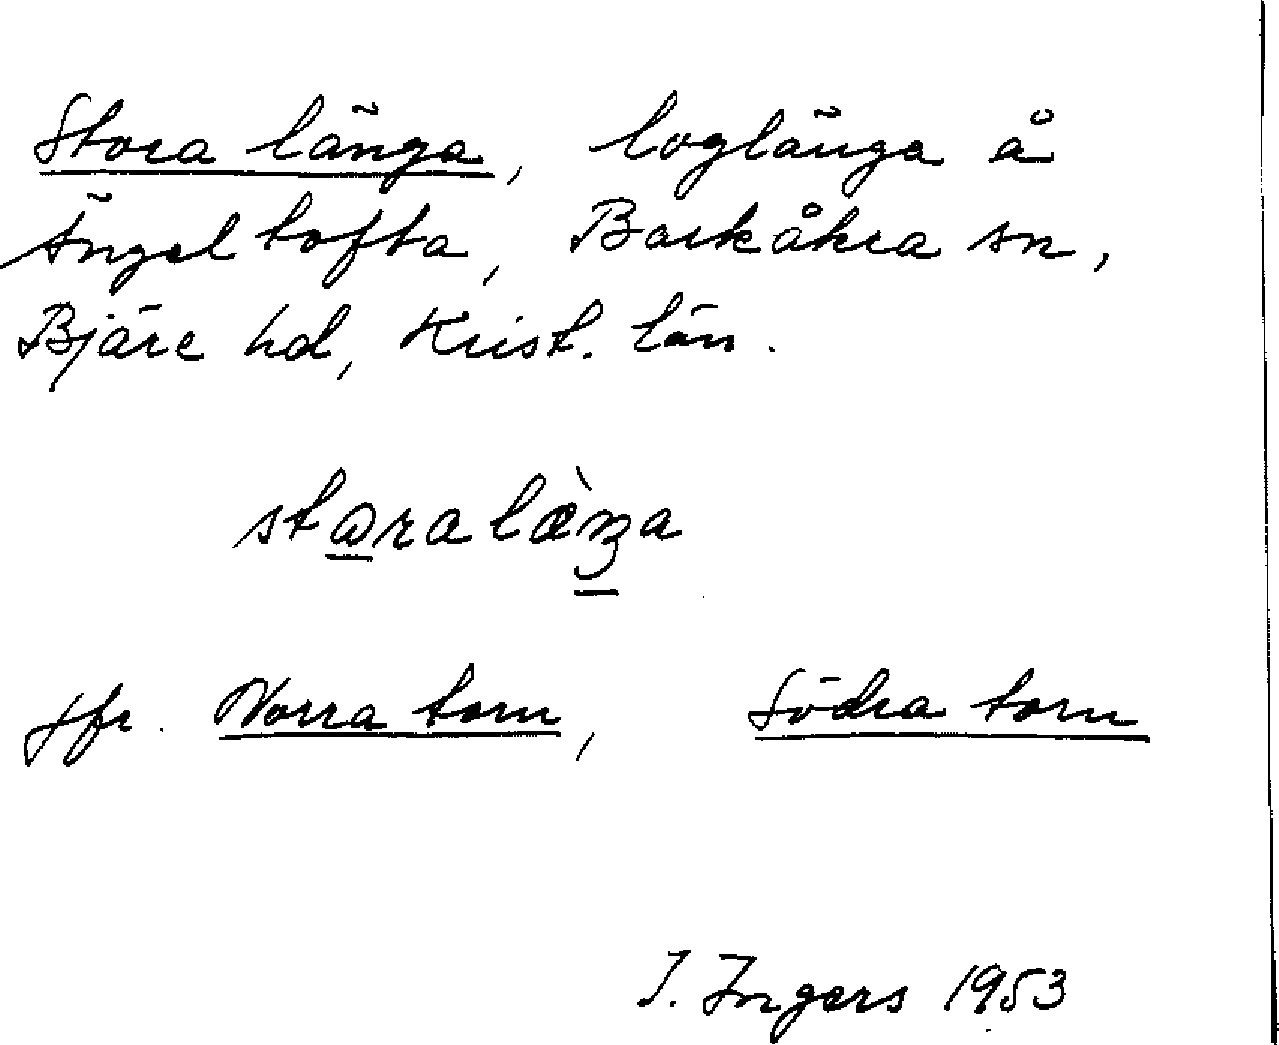 Stora länga, loglänga å
Ängeltofta, Barkåkra sn,
Bjäre hd, Krist. län.
jfr. Norra torn, Södra torn
I. Ingers 1953